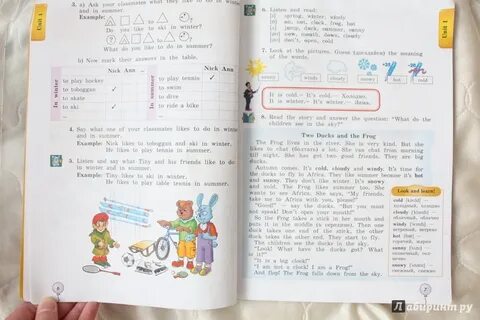 Unit 1
3. a) Ask your classmates what they like to do in winter
and in summer.
Example:
Do you like to ski in winter?
What do you like to do in summer?
b) Now mark their answers in the table.
Nick Ann
Nick Ann
In winter
to play hockey
to toboggan ✓
to skate
to ski ✓
In summer
to play tennis ✓
to swim
to dive
to ride a bike
4. Say what one of your classmates likes to do in winter
and in summer.
Example: Nick likes to toboggan and ski in winter.
He likes to play tennis in summer.
5. Listen and say what Tiny and his friends like to do
in winter and in summer.
Example: Tiny likes to ski in winter.
He likes to play table tennis in summer.
6
Unit 1
6. Listen and read:
spring, winter, windy
7. Look at the pictures. Guess the meaning
of the words.
sunny
windy
cloudy
snowy
hot
cold
It is cold.— It's cold.— Холодно.
It is winter.— It's winter.— Зима.
8. Read the story and answer the question: "What do the
children see in the sky?"
Two Ducks and the Frog
The Frog lives in the river. She is very kind. But she
likes to chat (болтать) a lot. She can chat from morning
till night. She has got two good friends. They are big
ducks.
Autumn comes. It's cold, cloudy and windy. It's time for
the ducks to fly to Africa. They like summer because it's hot
and sunny. They don't like winter. It's snowy
and cold. The Frog likes summer too. She
wants to see Africa. She says, "My friends,
take me to Africa with you, please!"
"Good!" — say the ducks. "But you must
not speak! Don't open your mouth!"
So the Frog takes a stick in her mouth and
puts it in the middle (в середине). Then one
duck takes one end of the stick, the other
duck takes the other end. They start to fly.
The children see the ducks in the sky.
"Look! What have the ducks got? What is
it?"
"It is a big clock!"
"I am not a clock! I am a Frog!"
And flop! The Frog falls down from the sky.
Look and learn!
cold
холодный, холодно
cloudy
облачный, облачно
windy
ветреный, ветрено
hot
горячий, жарко
sunny
солнечный, солнечно
snowy
снежный, снежно
7
Лабиринт.ру